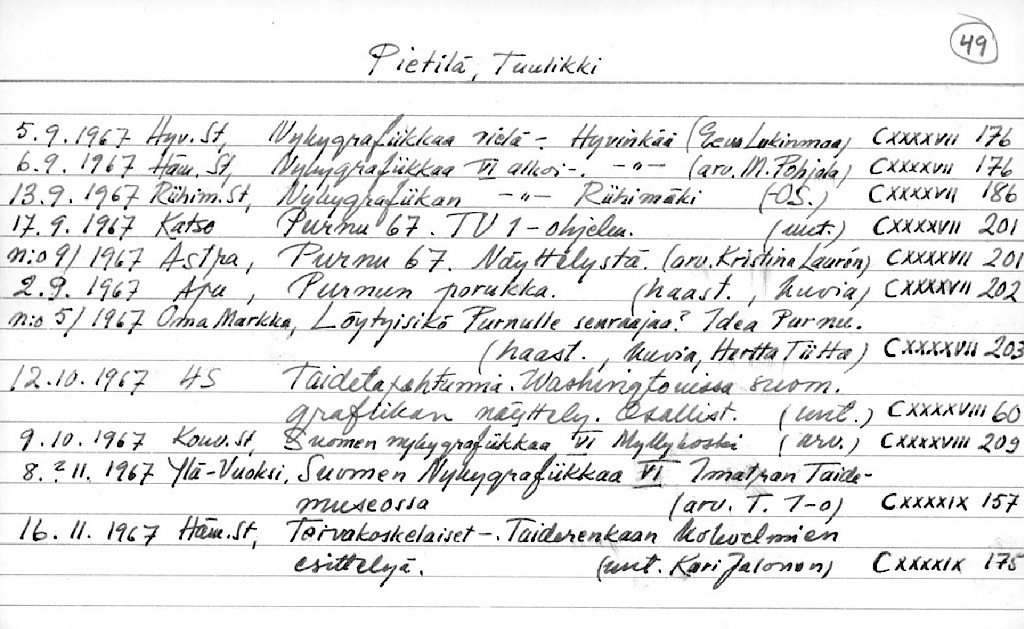 49
Pietilä, Tuulikki
5.9.1967 Hyv.St, Nykygrafiikkaa vielä - Hyvinkää (Eeva Lukinmaa) CXXXXVII 176
6.9.1967 Häm.St, Nykygrafiikkaa VI alkoi-. -"- (arv. M. Pohjola) CXXXXVII 176
13.9.1967 Riihim.St, Nykygrafiikan -"- Riihimäki (-OS.) CXXXXVII 186
17.9.1967 Katso Purnu 67. TV 1-ohjelm. (uut.) CXXXXVII 201
n:o 9/1967 Astra, Purnu 67. Näyttelystä. (arv. Kristina Laurén) CXXXXVII 201
2.9.1967 Apu, Purnun porukka. (haast., kuvia) CXXXXVII 202
n:o 5/1967 Oma Markka, Löytyisikö Purnulle seuraajaa? Idea Purnu.
(haast., kuvia, Hertta Tiitta) CXXXXVII 203
12.10.1967 HS Taidetapahtumia. Washingtonissa suom.
grafiikan näyttely. Osallist. (uut.) CXXXXVIII 60
9.10.1967 Kouv.St, Suomen nykygrafiikkaa VI Myllykoski (arv.) CXXXXVIII 209
8.?11.1967 Ylä-Vuoksi, Suomen Nykygrafiikkaa VI Imatran Taide-
museossa (arv. T. I-o) CXXXXIX 157
16.11.1967 Häm.St, Toivakoskelaiset -. Taiderenkaan kokoelmien
esittelyä. (uut. Kari Jalonen) CXXXXIX 175